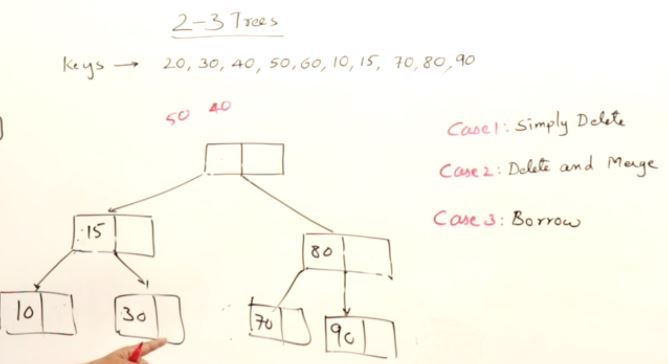 2-3 Trees
Keys → 20, 30, 40, 50, 60, 10, 15, 70, 80, 90
50 40
Case 1: Simply Delete
Case 2: Delete and Merge
Case 3: Borrow
15
80
10
30
70
90